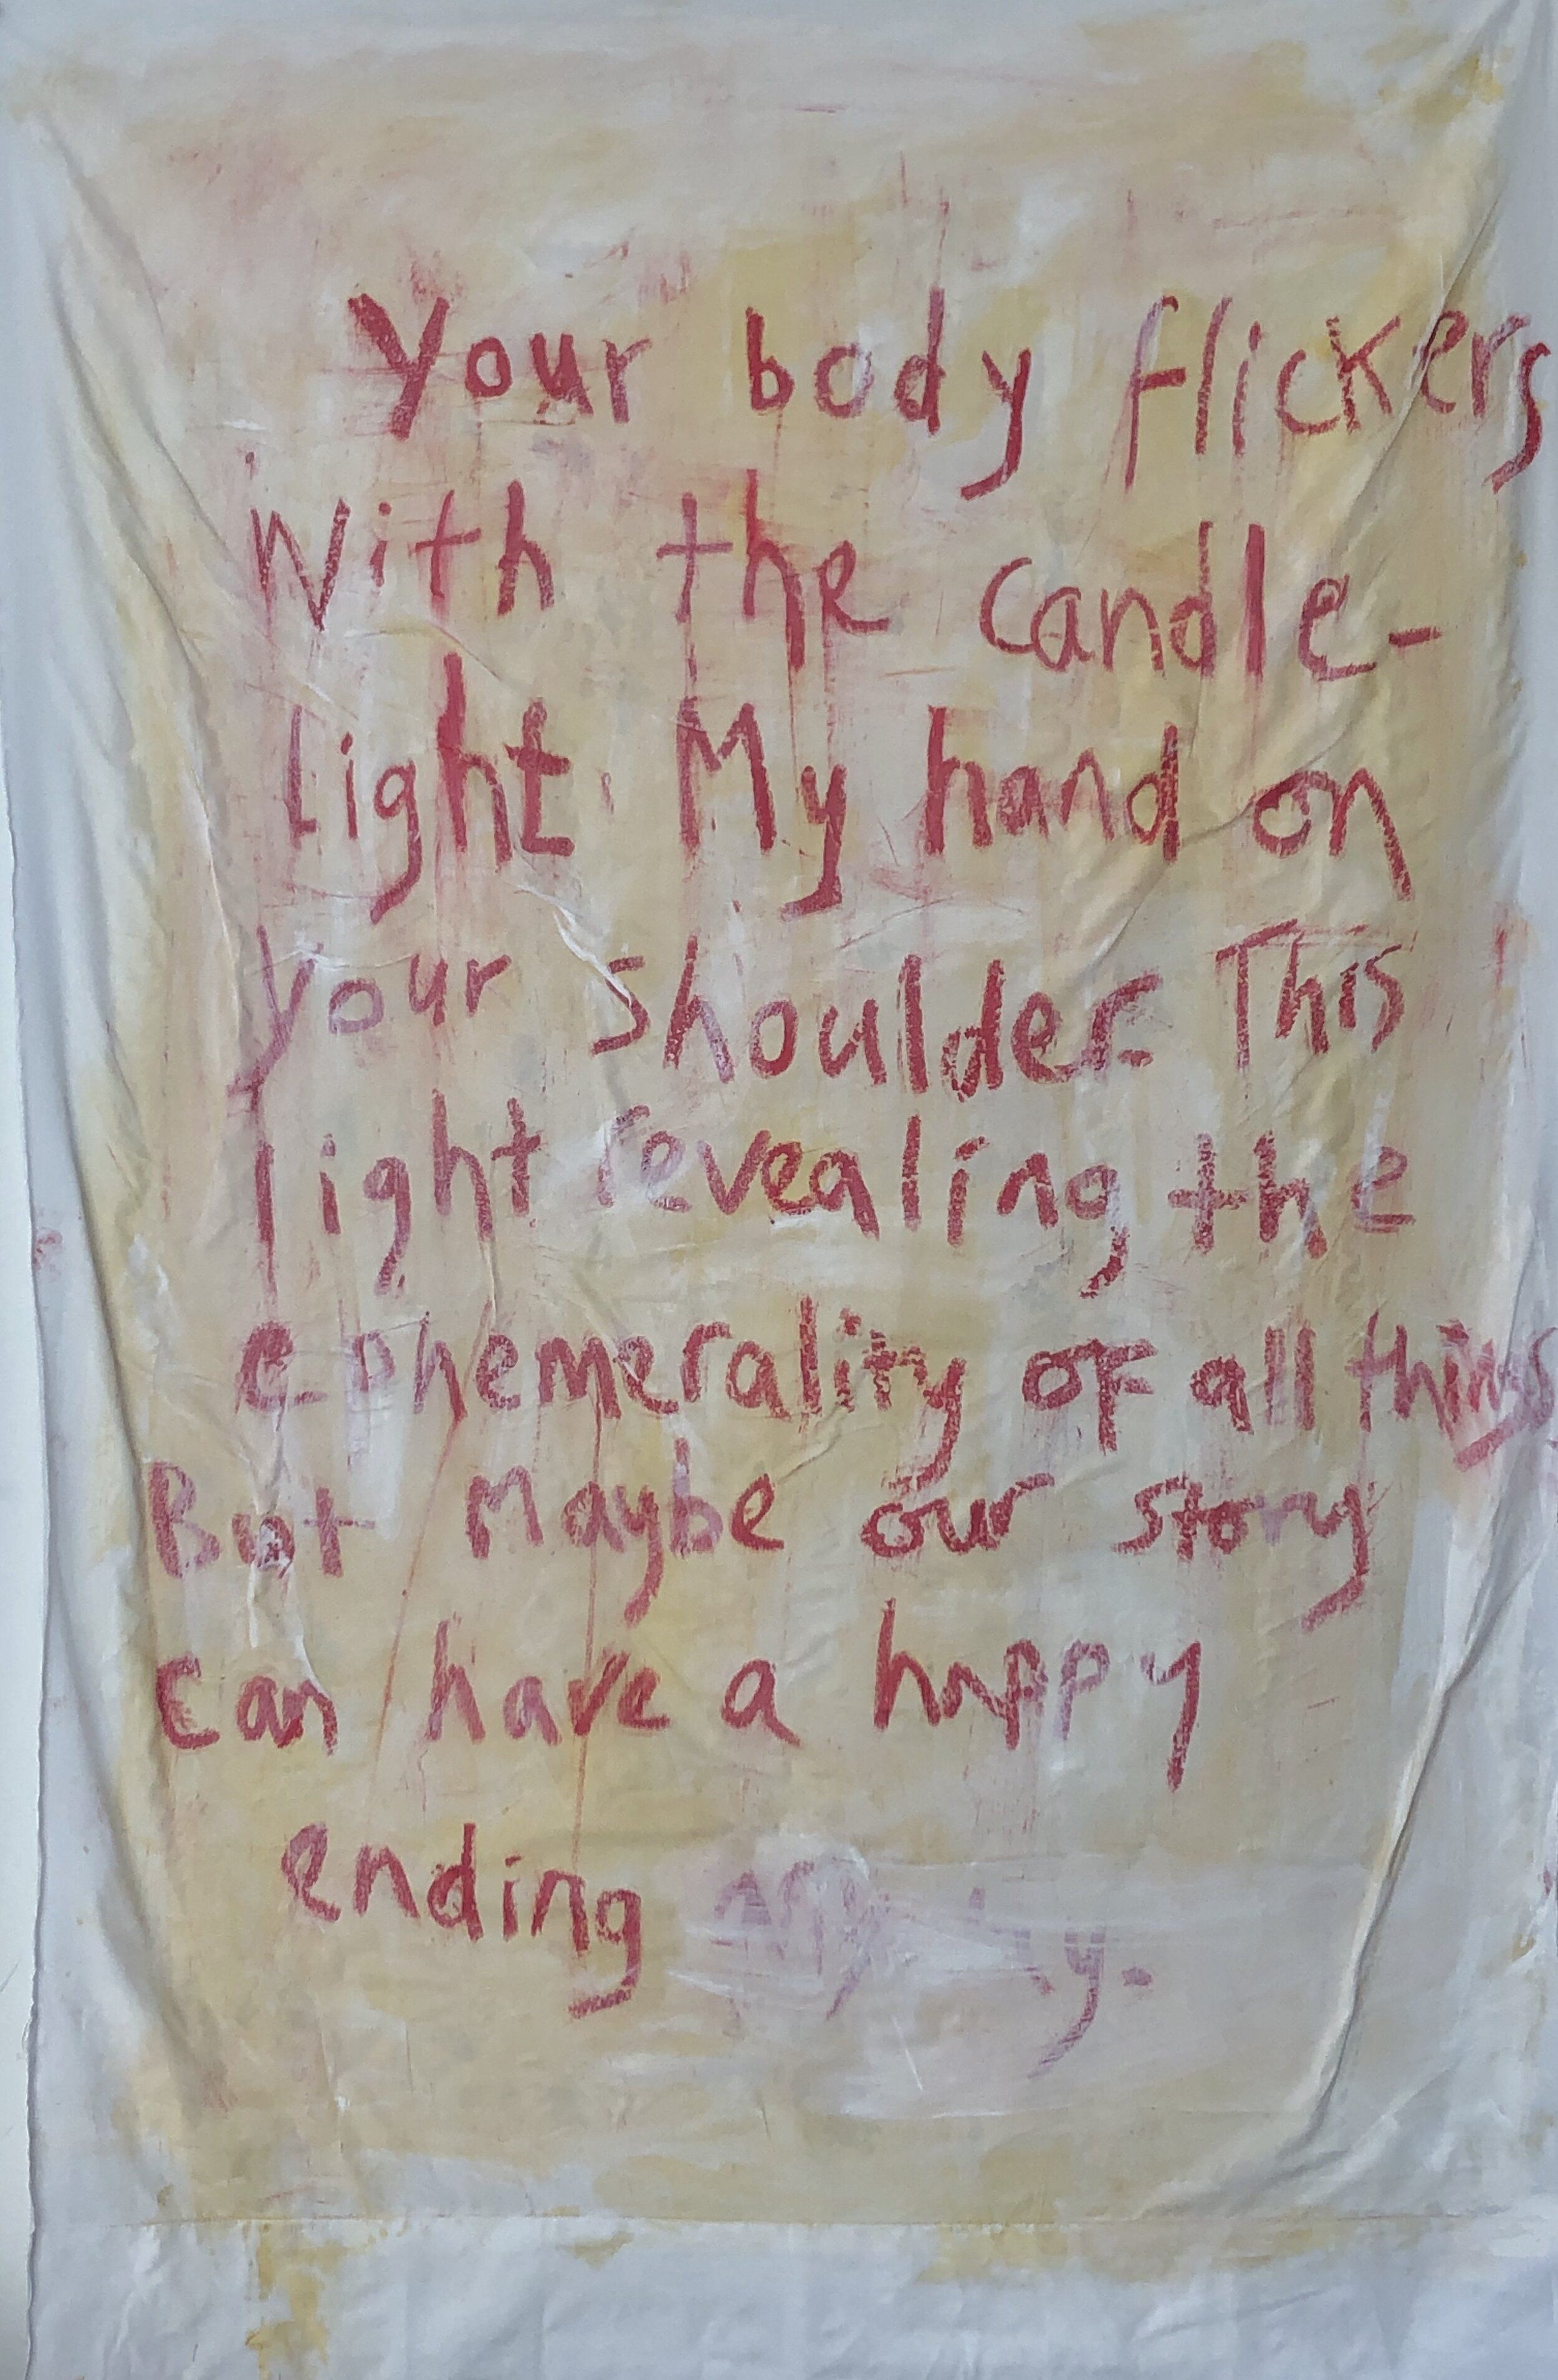 Your body flickers
with the candle-
light. My hand on
your shoulder. This
light revealing the
ephemerality of all things
But maybe our story
can have a happy
ending